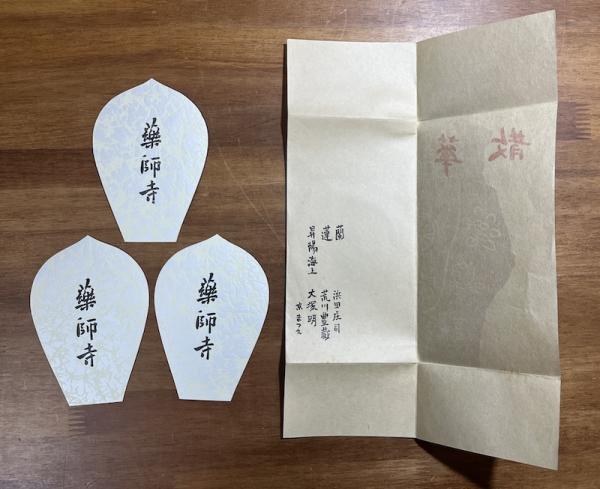 藥師寺
藥師寺
藥師寺
散華
蘭 浜田庄司
蓮 荒川豊藏
昇陽海上 大塚明